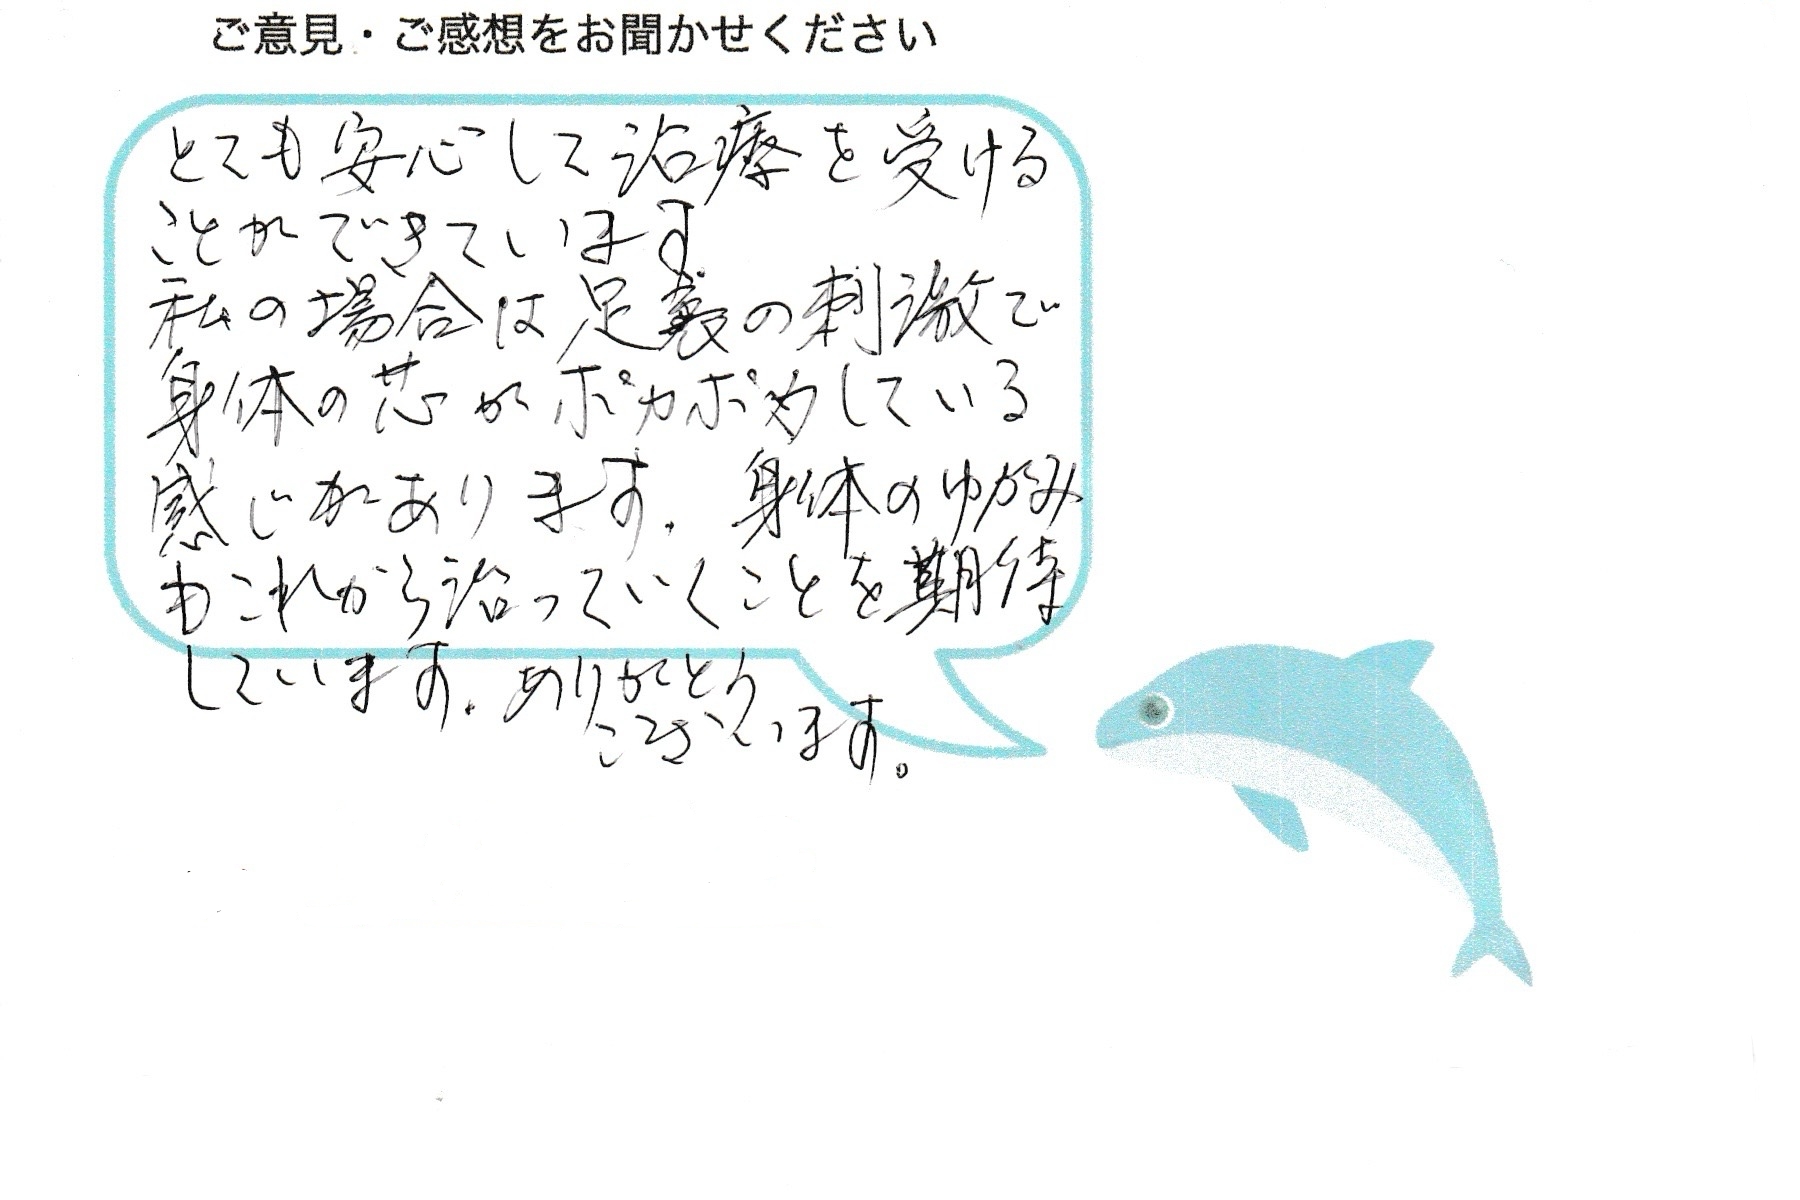 ご意見・ご感想をお聞かせください
とても安心して治療を受ける
ことができています
私の場合は足裏の刺激で
身体の芯がポカポカしている
感じがあります。身体のゆがみ
もこれから治っていくことを期待
しています。ありがとう
ございます。